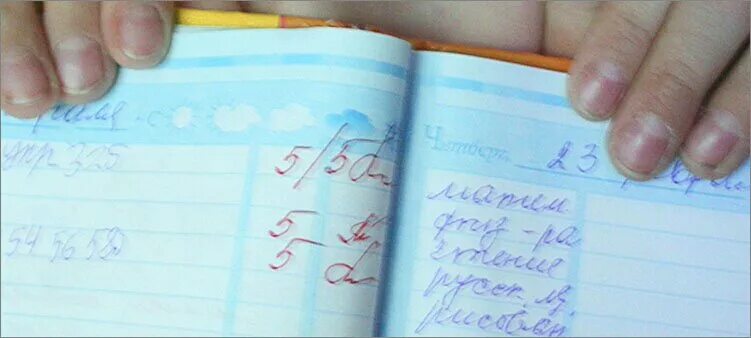 упр 325
5/5
5
54 56 58
5
Четверг 23
матем
физ-ра
чтение
русск. яз.
рисован